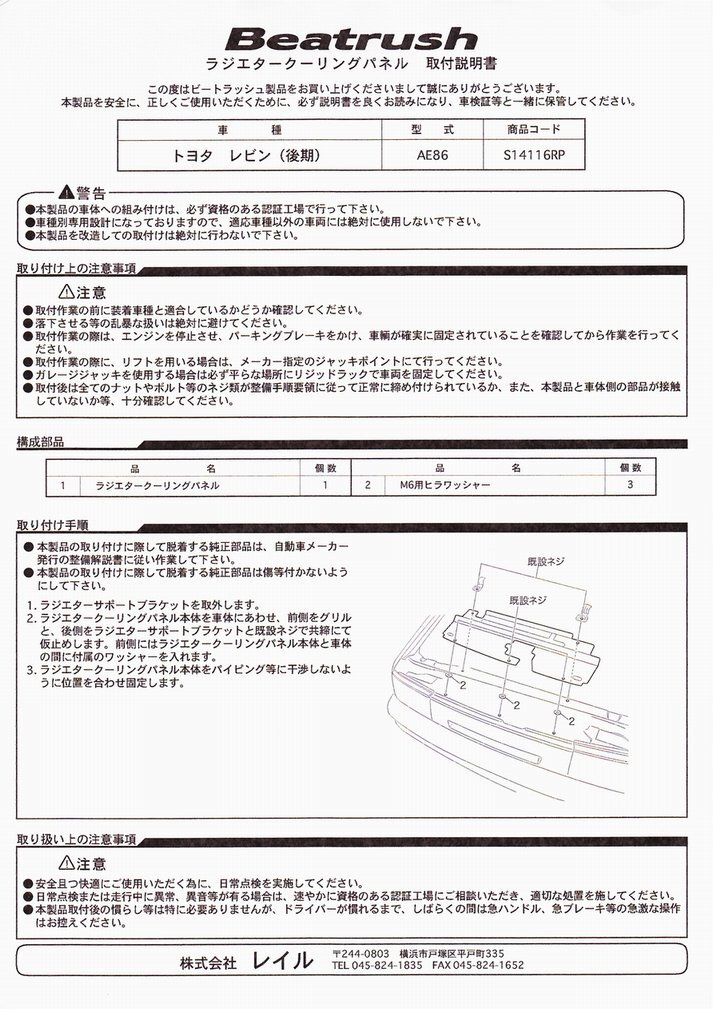 Beatrush
ラジエタークーリングパネル 取付説明書
この度はビートラッシュ製品をお買い上げくださいまして誠にありがとうございます。
本製品を安全に、正しくご使用いただくために、必ず説明書を良くお読みになり、車検証等と一緒に保管してください。
車 種 型 式 商品コード
トヨタ レビン（後期） AE86 S14116RP
警告
●本製品の車体への組み付けは、必ず資格のある認証工場で行って下さい。
●車種別専用設計になっておりますので、適応車種以外の車両には絶対に使用しないで下さい。
●本製品を改造しての取付けは絶対に行わないで下さい。
取り付け上の注意事項
注意
●取付作業の前に装着車種と適合しているかどうか確認してください。
●落下させる等の乱暴な扱いは絶対に避けてください。
●取付作業の際は、エンジンを停止させ、パーキングブレーキをかけ、車輌が確実に固定されていることを確認してから作業を行ってく
ださい。
●取付作業の際に、リフトを用いる場合は、メーカー指定のジャッキポイントにて行ってください。
●ガレージジャッキを使用する場合は必ず平らな場所にリジッドラックで車両を固定してください。
●取付後は全てのナットやボルト等のネジ類が整備手順要領に従って正常に締め付けられているか、また、本製品と車体側の部品が接触
していないか等、十分確認してください。
構成部品
品 名 個数 品 名 個数
1 ラジエタークーリングパネル 1 2 M6用ヒラワッシャー 3
取り付け手順
●本製品の取り付けに際して脱着する純正部品は、自動車メーカー
発行の整備解説書に従い作業して下さい。
●本製品の取り付けに際して脱着する純正部品は傷等付かないよう
にして下さい。
1. ラジエターサポートブラケットを取外します。
2. ラジエタークーリングパネル本体を車体にあわせ、前側をグリル
と、後側をラジエターサポートブラケットと既設ネジで共締にて
仮止めします。前側にはラジエタークーリングパネル本体と車体
の間に付属のワッシャーを入れます。
3. ラジエタークーリングパネル本体をパイピング等に干渉しないよ
うに位置を合わせ固定します。
既設ネジ
既設ネジ
2
2
2
取り扱い上の注意事項
注意
●安全且つ快適にご使用いただく為に、日常点検を実施してください。
●日常点検または走行中に異常、異音等が有る場合は、速やかに資格のある認証工場にご相談いただき、適切な処置を施してください。
●本製品取付後の慣らし等は特に必要ありませんが、ドライバーが慣れるまで、しばらくの間は急ハンドル、急ブレーキ等の急激な操作
はお控えください。
株式会社 レイル 〒244-0803 横浜市戸塚区平戸町335
TEL 045-824-1835 FAX 045-824-1652